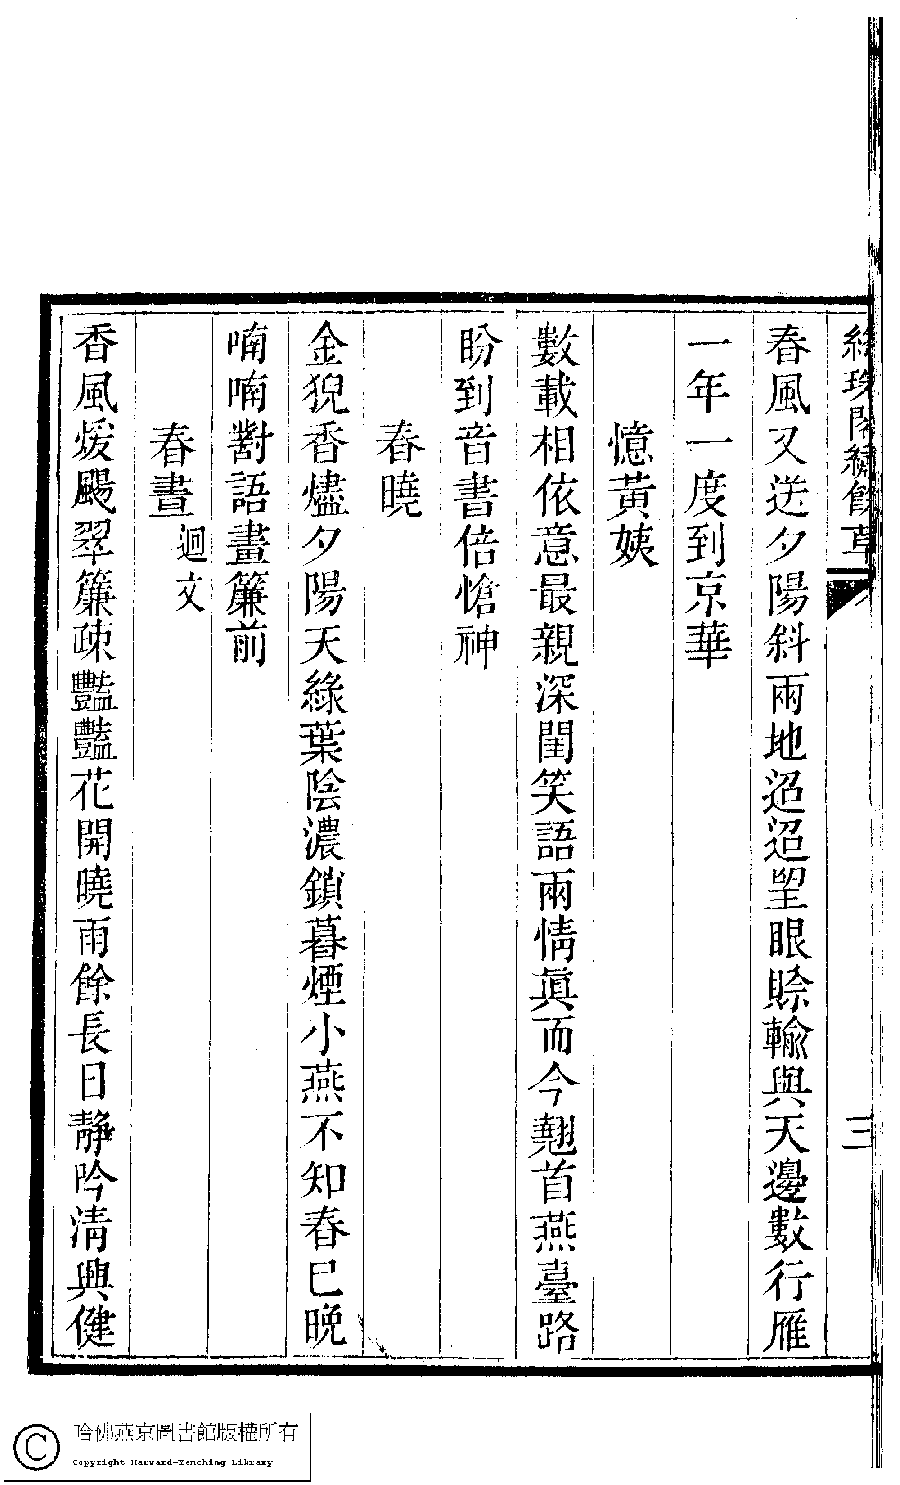 珠閣繡餘草
三
春風又送夕陽斜兩地迢迢望眼賒輸與天邊數行雁
一年一度到京華
憶黃姨
數載相依意最親深閨笑語兩情眞而今翹首燕臺路
盼到音書倍愴神
春曉
金猊香燼夕陽天綠葉陰濃鎖暮煙小燕不知春已晚
喃喃對語畫簾前
春晝 迴文
香風煖颺翠簾疎豔豔花開曉雨餘長日靜吟清興健
哈佛燕京圖書館版權所有
Copyright Harvard-Yenching Library